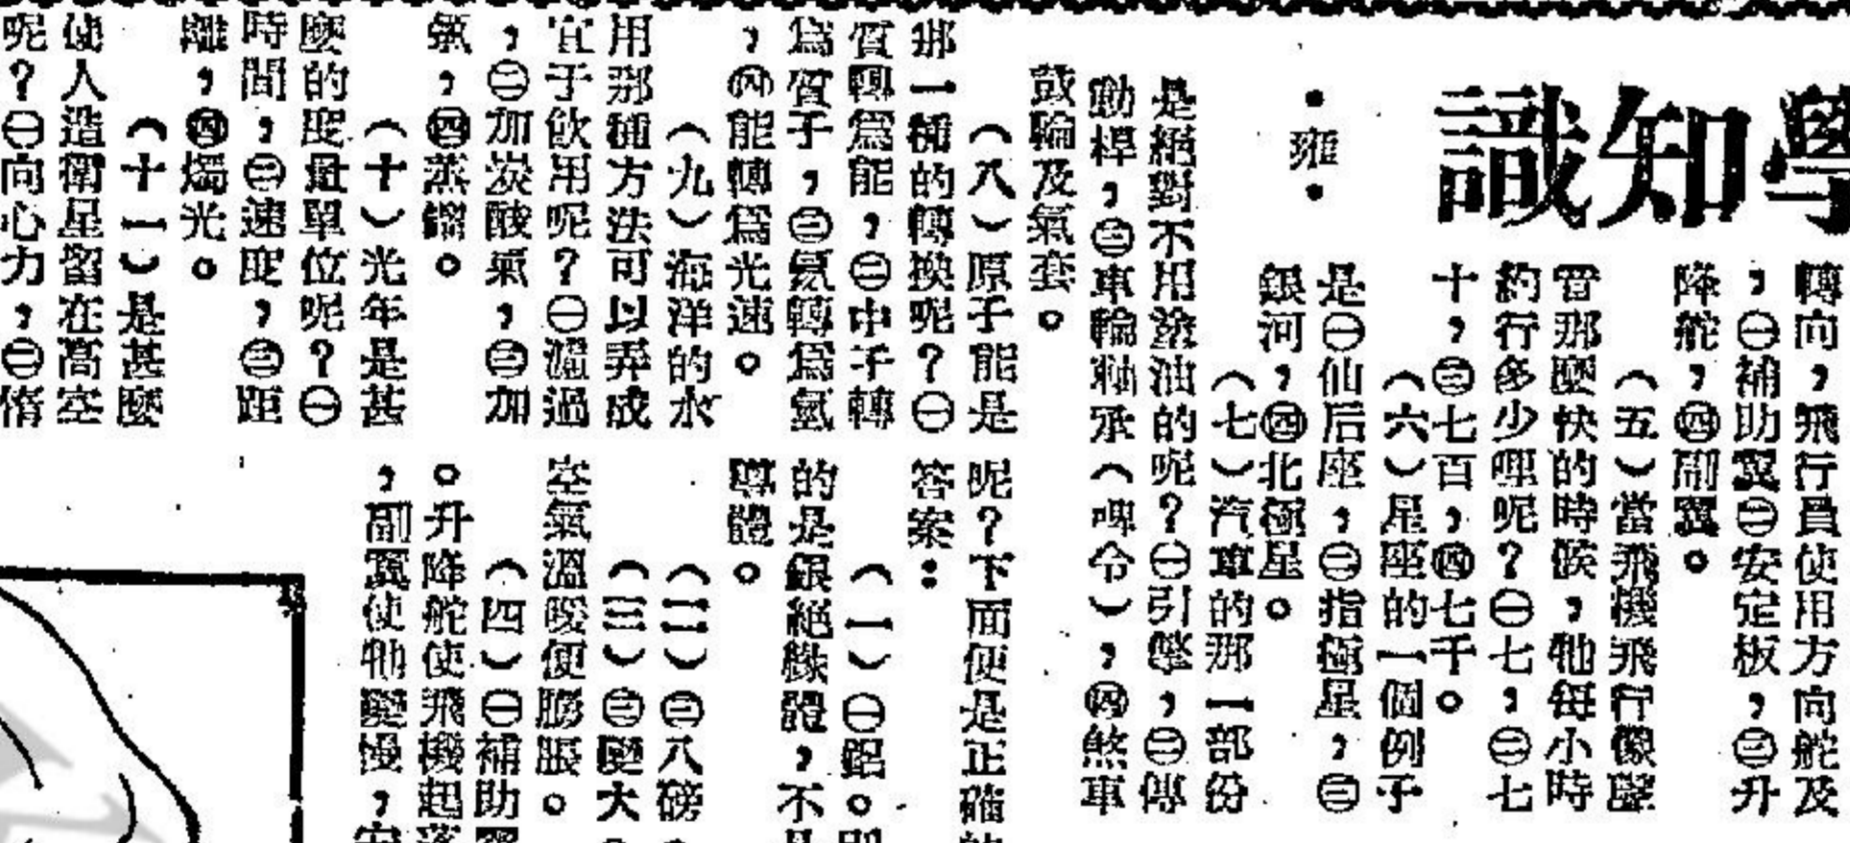 學知識
·雍·
轉向,飛行員使用方向舵及
,㊀補助翼㊁安定板,㊂升
降舵,㊃副翼。
(五)當飛機飛行像聲
音那麼快的時候,牠每小時
約行多少哩呢?㊀七,㊁七
十,㊂七百,㊃七千。
(六)星座的一個例子
是㊀仙后座,㊁指極星,㊂
銀河,㊃北極星。
(七)汽車的那一部份
是絕對不用滑油的呢?㊀引擎,㊁傳
動桿,㊂車輪軸承(啤令),㊃煞車
鼓輪及氣套。
(八)原子能是
那一種的轉換呢?㊀
質轉爲能,㊁中子轉
爲質子,㊂氦轉爲氫
,㊃能轉爲光速。
(九)海洋的水
用那種方法可以弄成
宜于飲用呢?㊀濾過
,㊁加炭酸氣,㊂加
氯,㊃蒸餾。
(十)光年是甚
麼的度量單位呢?㊀
時間,㊁速度,㊂距
離,㊃燭光。
(十一)是甚麼
使人造衛星留在高空
呢?㊀向心力,㊁惰
呢?下面便是正確的
答案:
(一)㊀鋁。
的是銀絕緣體,不是
導體。
(二)㊂八磅。
(三)㊂變大。
空氣溫暖便膨脹。
(四)㊀補助翼
。升降舵使飛機起落
,副翼使牠變慢,安